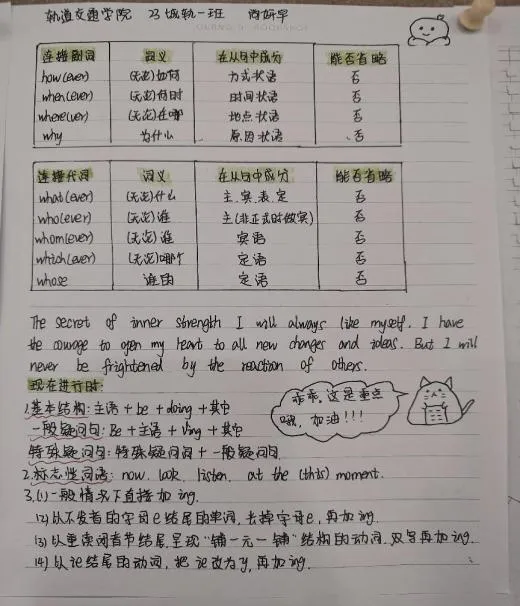 轨道交通学院 23城轨一班
连接副词 词义 在从句中成分 能否省略
how(ever) (无论)如何 方式状语 否
when(ever) (无论)何时 时间状语 否
where(ver) (无论)在哪 地点状语 否
why 为什么 原因状语 否
连接代词 词义 在从句中成分 能否省略
what(ever) (无论)什么 主.宾.表.定 否
who(ever) (无论)谁 主(非正式时做宾) 否
whom(ever) (无论)谁 宾语 否
which(ever) (无论)哪个 定语 否
whose 谁的 定语 否
The secret of inner strength I will always like myself. I have
the courage to open my heart to all new changes and ideas. But I will
never be frightened by the reaction of others.
现在进行时:
1.基本结构:主语 + be + doing + 其它
一般疑问句: Be + 主语 + Ving + 其它
特殊疑问句: 特殊疑问词 + 一般疑问句
乖乖,这是重点
哦,加油!!!
2.标志性词语: now. look. listen. at the (this) moment.
3.(1)一般情况下直接加 ing.
(2)以不发音的字母e结尾的单词,去掉字母e,再加ing.
(3)以重读闭音节结尾,呈现"辅一元一辅"结构的动词,双写再加ing.
(4)以ie结尾的动词,把ie改为y,再加ing.